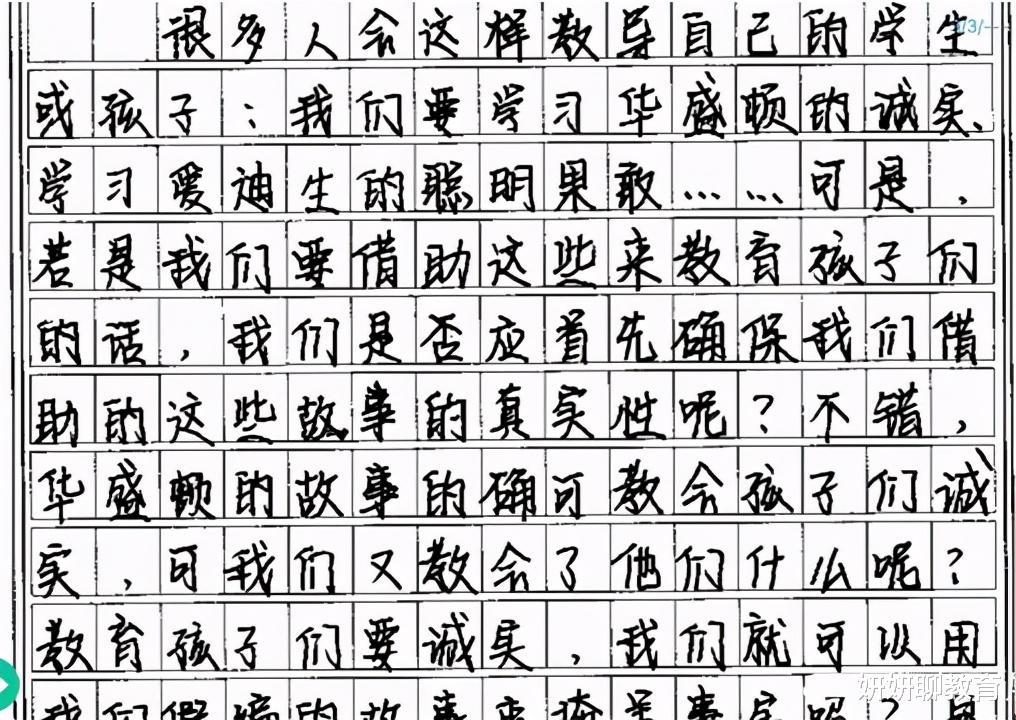 很多人会这样教导自己的学生
或孩子：我们要学习华盛顿的诚实、
学习爱迪生的聪明果敢……可是，
若是我们要借助这些来教育孩子们
的话，我们是否应首先确保我们借
助的这些故事的真实性呢？不错，
华盛顿的故事的确可教会孩子们诚
实，可我们又教会了他们什么呢？
教育孩子们要诚实，我们就可以用
我们假编的故事来掩盖事实吗？
妍妍聊教育